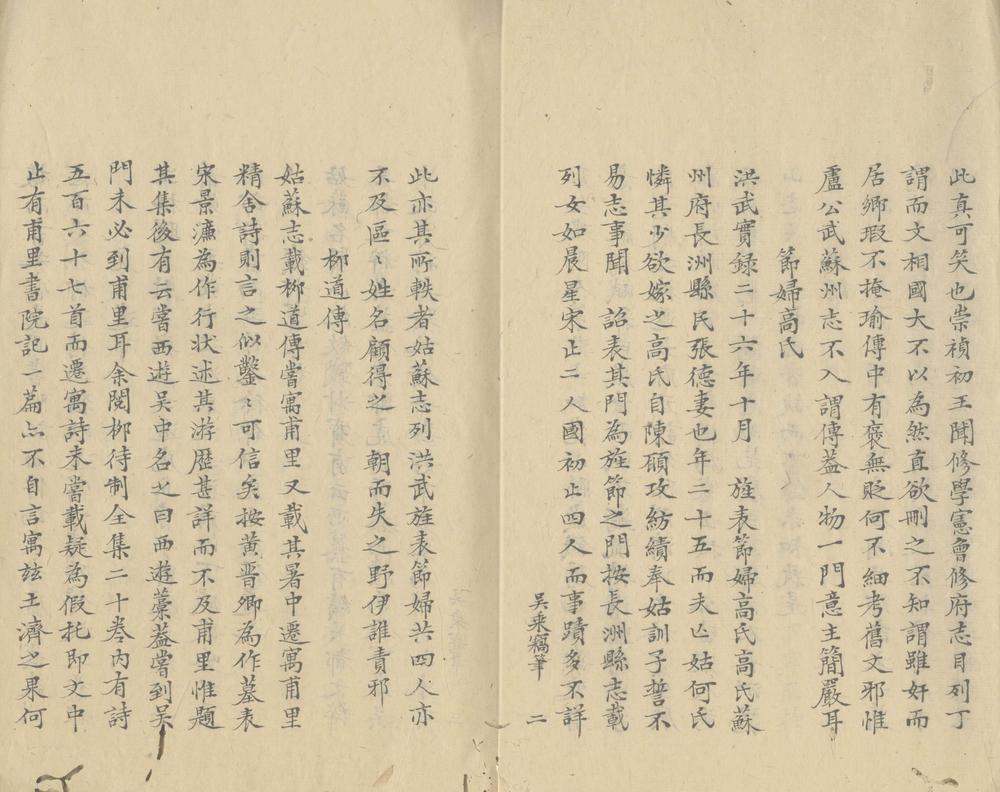 此真可笑也崇禎初王聞修學憲會修府志目列丁
謂而文相國大不以為然直欲刪之不知謂雖奸而
居鄉瑕不掩瑜傳中有褒無貶何不細考舊文邪惟
盧公武蘇州志不入謂傳葢人物一門意主簡嚴耳
節婦高氏
洪武實録二十六年十月 旌表節婦高氏高氏蘇
州府長洲縣民張德妻也年二十五而夫亡姑何氏
憐其少欲嫁之高氏自陳願攻紡績奉姑訓子誓不
易志事聞 詔表其門為旌節之門按長洲縣志載
列女如晨星宋止二人國初止四人而事蹟多不詳
吴乘竊筆 二
此亦其所軼者姑蘇志列洪武旌表節婦共四人亦
不及區〻姓名顧得之朝而失之野伊誰責邪
柳道傳
姑蘇志載柳道傳嘗寓甫里又載其暑中遷寓甫里
精舍詩則言之似鑿〻可信矣按黃晋卿為作墓表
宋景濂為作行狀述其游歷甚詳而不及甫里惟題
其集後有云嘗西遊吴中名之曰西遊藁葢嘗到吴
門未必到甫里耳余閱柳待制全集二十卷內有詩
五百六十七首而遷寓詩未嘗載疑為假托即文中
止有甫里書院記一篇亦不自言寓玆土濟之果何